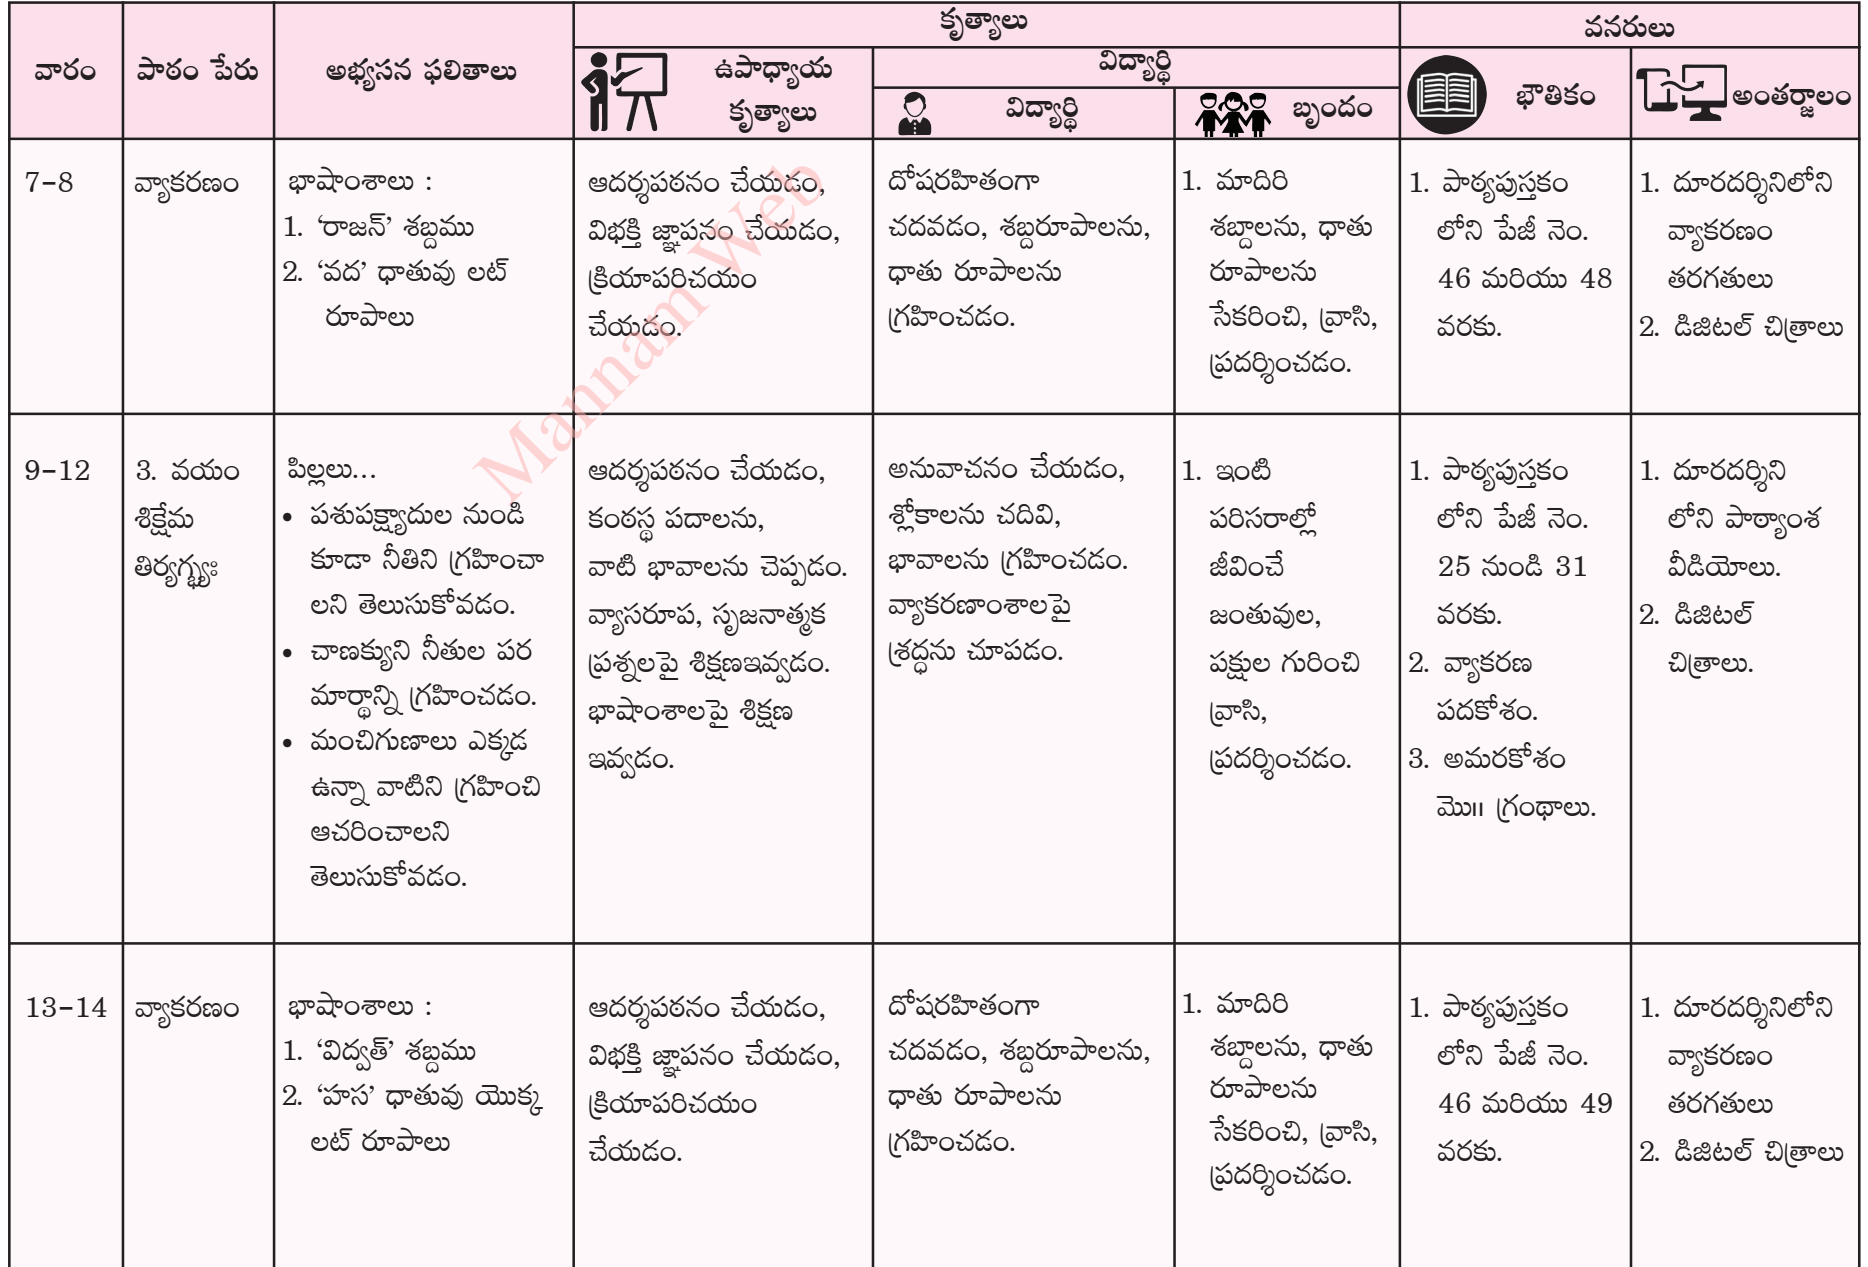 కృత్యాలు
వనరులు
వారం
పాఠం పేరు
అభ్యసన ఫలితాలు
ఉపాధ్యాయ
కృత్యాలు
విద్యార్థి
విద్యార్థి
బృందం
భౌతికం
అంతర్జాలం
7-8
వ్యాకరణం
భాషాంశాలు :
1. ‘రాజన్’ శబ్దము
2. ‘వద’ ధాతువు లట్
రూపాలు
ఆదర్శపఠనం చేయడం,
విభక్తి జ్ఞాపనం చేయడం,
క్రియాపరిచయం
చేయడం.
దోషరహితంగా
చదవడం, శబ్దరూపాలను,
ధాతు రూపాలను
గ్రహించడం.
1. మాదిరి
శబ్దాలను, ధాతు
రూపాలను
సేకరించి, వ్రాసి,
ప్రదర్శించడం.
1. పాఠ్యపుస్తకం
లోని పేజీ నెం.
46 మరియు 48
వరకు.
1. దూరదర్శినిలోని
వ్యాకరణం
తరగతులు
2. డిజిటల్ చిత్రాలు
9-12
3. వయం
శిక్షేమ
తిర్యగ్భ్యః
పిల్లలు...
• పశుపక్ష్యాదుల నుండి
కూడా నీతిని గ్రహించా
లని తెలుసుకోవడం.
• చాణక్యుని నీతుల పర
మార్థాన్ని గ్రహించడం.
• మంచిగుణాలు ఎక్కడ
ఉన్నా వాటిని గ్రహించి
ఆచరించాలని
తెలుసుకోవడం.
ఆదర్శపఠనం చేయడం,
కంఠస్థ పదాలను,
వాటి భావాలను చెప్పడం.
వ్యాసరూప, సృజనాత్మక
ప్రశ్నలపై శిక్షణఇవ్వడం.
భాషాంశాలపై శిక్షణ
ఇవ్వడం.
అనువాచనం చేయడం,
శ్లోకాలను చదివి,
భావాలను గ్రహించడం.
వ్యాకరణాంశాలపై
శ్రద్ధను చూపడం.
1. ఇంటి
పరిసరాల్లో
జీవించే
జంతువుల,
పక్షుల గురించి
వ్రాసి,
ప్రదర్శించడం.
1. పాఠ్యపుస్తకం
లోని పేజీ నెం.
25 నుండి 31
వరకు.
2. వ్యాకరణ
పదకోశం.
3. అమరకోశం
మొ॥ గ్రంథాలు.
1. దూరదర్శిని
లోని పాఠ్యాంశ
వీడియోలు.
2. డిజిటల్
చిత్రాలు.
13-14
వ్యాకరణం
భాషాంశాలు :
1. ‘విద్వత్’ శబ్దము
2. ‘హస’ ధాతువు యొక్క
లట్ రూపాలు
ఆదర్శపఠనం చేయడం,
విభక్తి జ్ఞాపనం చేయడం,
క్రియాపరిచయం
చేయడం.
దోషరహితంగా
చదవడం, శబ్దరూపాలను,
ధాతు రూపాలను
గ్రహించడం.
1. మాదిరి
శబ్దాలను, ధాతు
రూపాలను
సేకరించి, వ్రాసి,
ప్రదర్శించడం.
1. పాఠ్యపుస్తకం
లోని పేజీ నెం.
46 మరియు 49
వరకు.
1. దూరదర్శినిలోని
వ్యాకరణం
తరగతులు
2. డిజిటల్ చిత్రాలు
Mannam Web